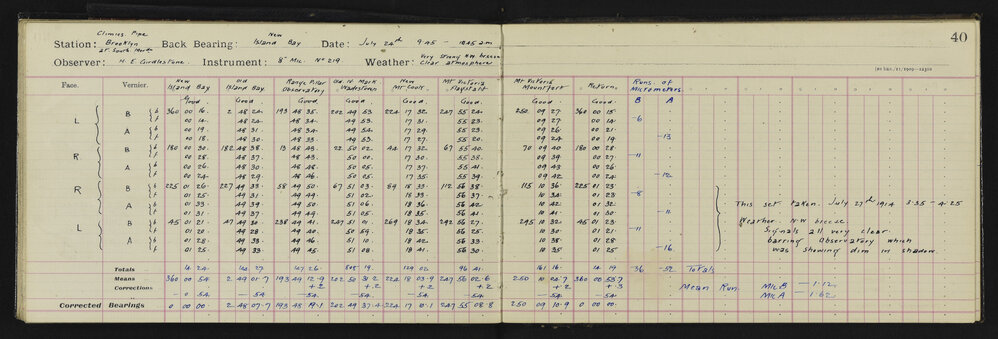 40
Climies Pipe
Station: Brooklyn Back Bearing: New Island Bay Date: July 24th 9.45 - 10.45 am
at South
Observer: H E Girdlestone. Instrument: 8" Mic. No 219 Weather: Very strong NW breeze Clear atmosphere
Face. Vernier. New Island Bay Old Island Bay Range Pillar Observatory Old N. Mark Wadestown New Mt Cook. Mt Victoria Flagstaff Mt Victoria Mountfort Return. Runs of Micrometers
Good Good. Good. Good. Good. Good. Good. Good. B A
L B b 360 00 16 2 48 24 193 48 35 202 49 53 224 17 32 247 55 24 250 09 27 360 00 15
f 00 14 48 34 49 53 17 31 55 23 09 27 00 14 -6
A b 00 19 48 31 48 34 49 53 17 29 55 23 09 26 00 21
f 00 18 48 30 48 33 49 53 17 27 55 20 09 24 00 19 -13
R B b 180 00 30 182 48 38 13 48 43 22 50 02 44 17 32 67 55 40 70 09 40 180 00 28
f 00 28 48 37 48 43 50 00 17 30 55 38 09 39 00 27 -11
A b 00 26 48 30 48 48 50 05 17 37 55 41 09 43 00 26
f 00 24 48 29 48 46 50 05 17 35 55 39 09 42 00 24 -12
R B b 225 01 26 227 49 33 58 49 50 67 51 03 89 18 33 112 56 38 115 10 36 225 01 23
f 01 25 49 31 49 49 51 02 18 33 56 37 10 34 01 23 -8
A b 01 33 49 39 49 50 51 06 18 36 56 42 10 42 01 32
f 01 31 49 37 49 49 51 05 18 35 56 41 10 41 01 30 -11
L B b 45 01 21 47 49 30 238 49 41 247 51 01 269 18 34 292 56 27 295 10 32 45 01 23
f 01 20 49 28 49 40 50 59 18 35 56 25 10 30 01 21 -11
A b 01 28 49 33 49 46 51 10 18 42 56 33 10 38 01 28
f 01 25 49 33 49 45 51 08 18 41 56 30 10 35 01 25 -16
This set taken. July 27th 1914 3-35 - 4-25
Weather. N.W breeze
Signals all very clear
barring Observatory which
was showing dim in shadow.
Totals 14 24 129 02 96 41 161 16 14 19 -36 -52 Totals
Means 360 00 54 2 49 01.7 193 49 12.9 202 50 31.2 224 18 03.9 247 56 02.6 250 10 04.7 360 00 53.7 Mean Run. Mic B -1.12
Corrections +.2 +.2 +.2 +.2 +.2 +.3 Mic A -1.62
- 0 54 54 54 54 54 54 54 54
Corrected Bearings 0 00 00 2 48 07.7 193 48 19.1 202 49 37.4 224 17 10.1 247 55 08.8 250 09 10.9 0 00 00